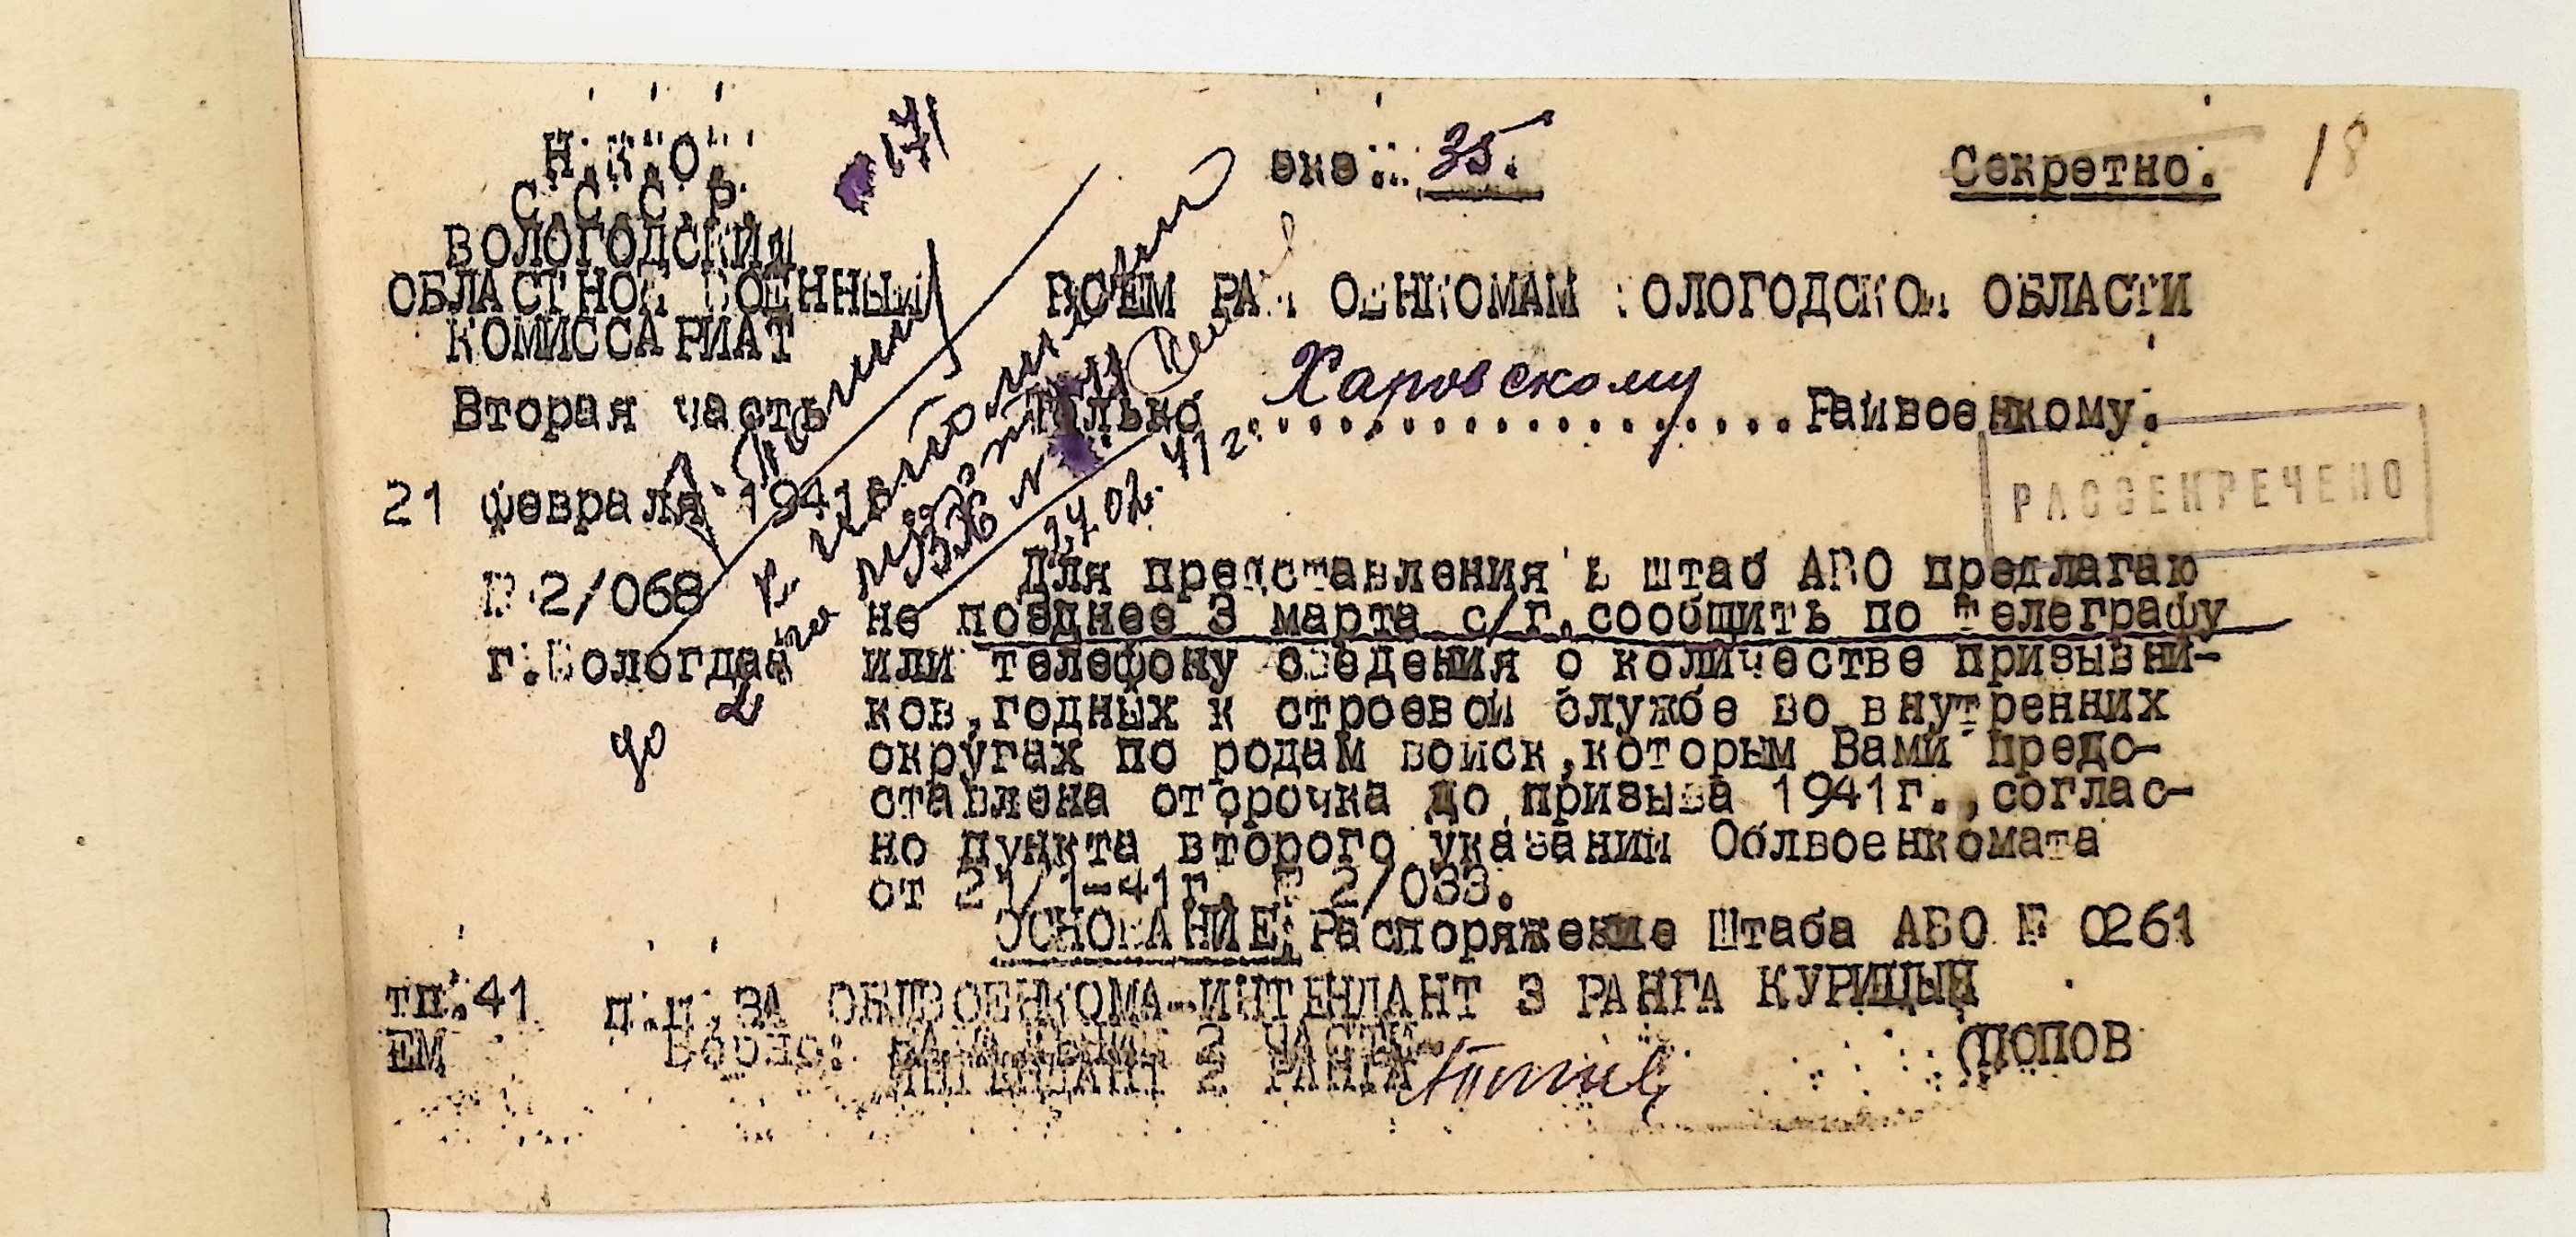 Н.К.О.
С.С.С.Р.
ВОЛОГОДСКИЙ
ОБЛАСТНОЙ ВОЕННЫЙ
КОМИССАРИАТ
Вторая часть
21 февраля 1941г
№ 2/068
г.Вологда
171
экз. 35.
Секретно.
18
ВСЕМ РАЙВОЕНКОМАМ ВОЛОГОДСКОЙ ОБЛАСТИ
только Харовскому Райвоенкому.
РАССЕКРЕЧЕНО
27.02.41 г.
Для представления в штаб АВО предлагаю
не позднее 3 марта с/г.сообщить по телеграфу
или телефону сведения о количестве призывни-
ков,годных к строевой службе во внутренних
округах по родам войск,которым Вами предо-
ставлена отсрочка до призыва 1941г.,соглас-
но пункта второго указаний Облвоенкомата
от 21/1-41г. № 2/033.
ОСНОВАНИЕ: Распоряжение Штаба АВО № 0261
тп.41
ЕМ
п.п. ЗА ОБЛВОЕНКОМА-ИНТЕНДАНТ 3 РАНГА КУРИЦЫН
Верно: 2 ЧАСТИ
ИНТЕНДАНТ 2 РАНГА ПОПОВ